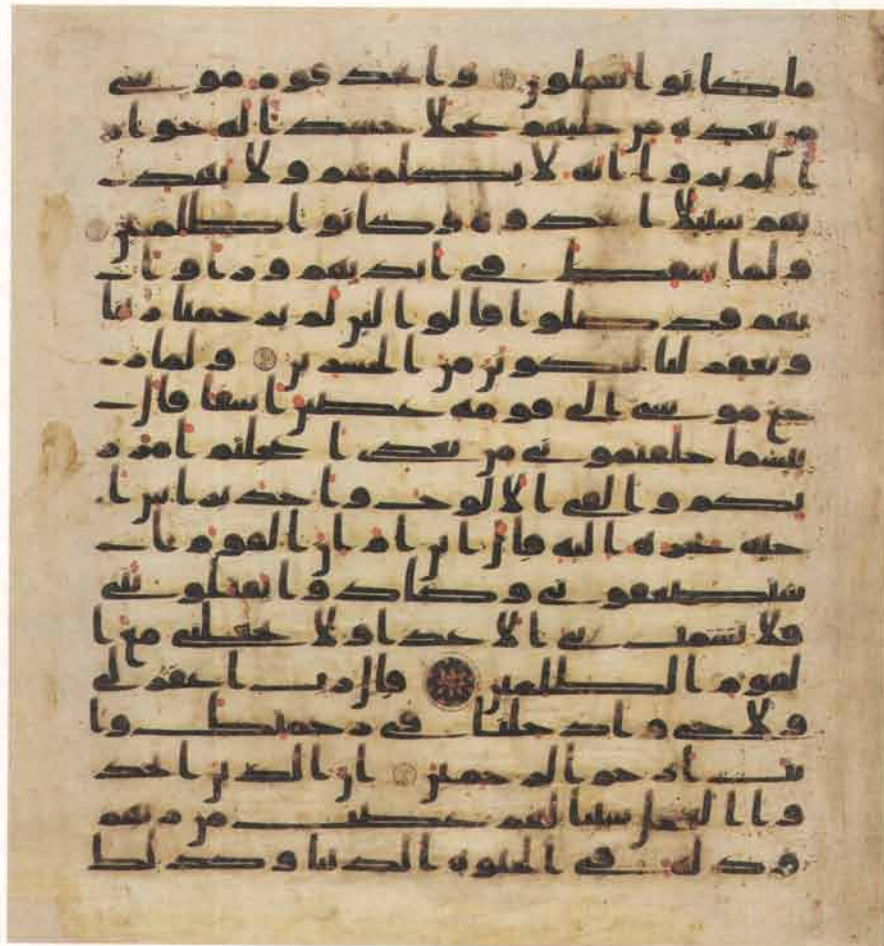 ما كانوا يعملون واتخذ قوم موسى
من بعده من حليهم عجلا جسدا له خوار
الم يروا انه لا يكلمهم ولا يهد
يهم سبيلا اتخذوه وكانوا ظلمين
ولما سقط في ايديهم وراوا ان
هم قد ضلوا قالوا لئن لم يرحمنا ربنا
ويغفر لنا لنكونن من الخسرين ولما ر
جع موسى الى قومه غضبن اسفا قال
بئسما خلفتموني من بعدي اعجلتم امر ر
بكم والقى الالوح واخذ براس ا
خيه يجره اليه قال ابن ام ان القوم ا
ستضعفوني وكادوا يقتلونني
فلا تشمت بي الاعدا ولا تجعلني مع ا
لقوم الظلمين قال رب اغفر لي
ولاخي وادخلنا في رحمتك وا
نت ارحم الرحمين ان الذين اتخذ
وا العجل سينالهم غضب من ربهم
وذلة في الحيوة الدنيا وكذلك